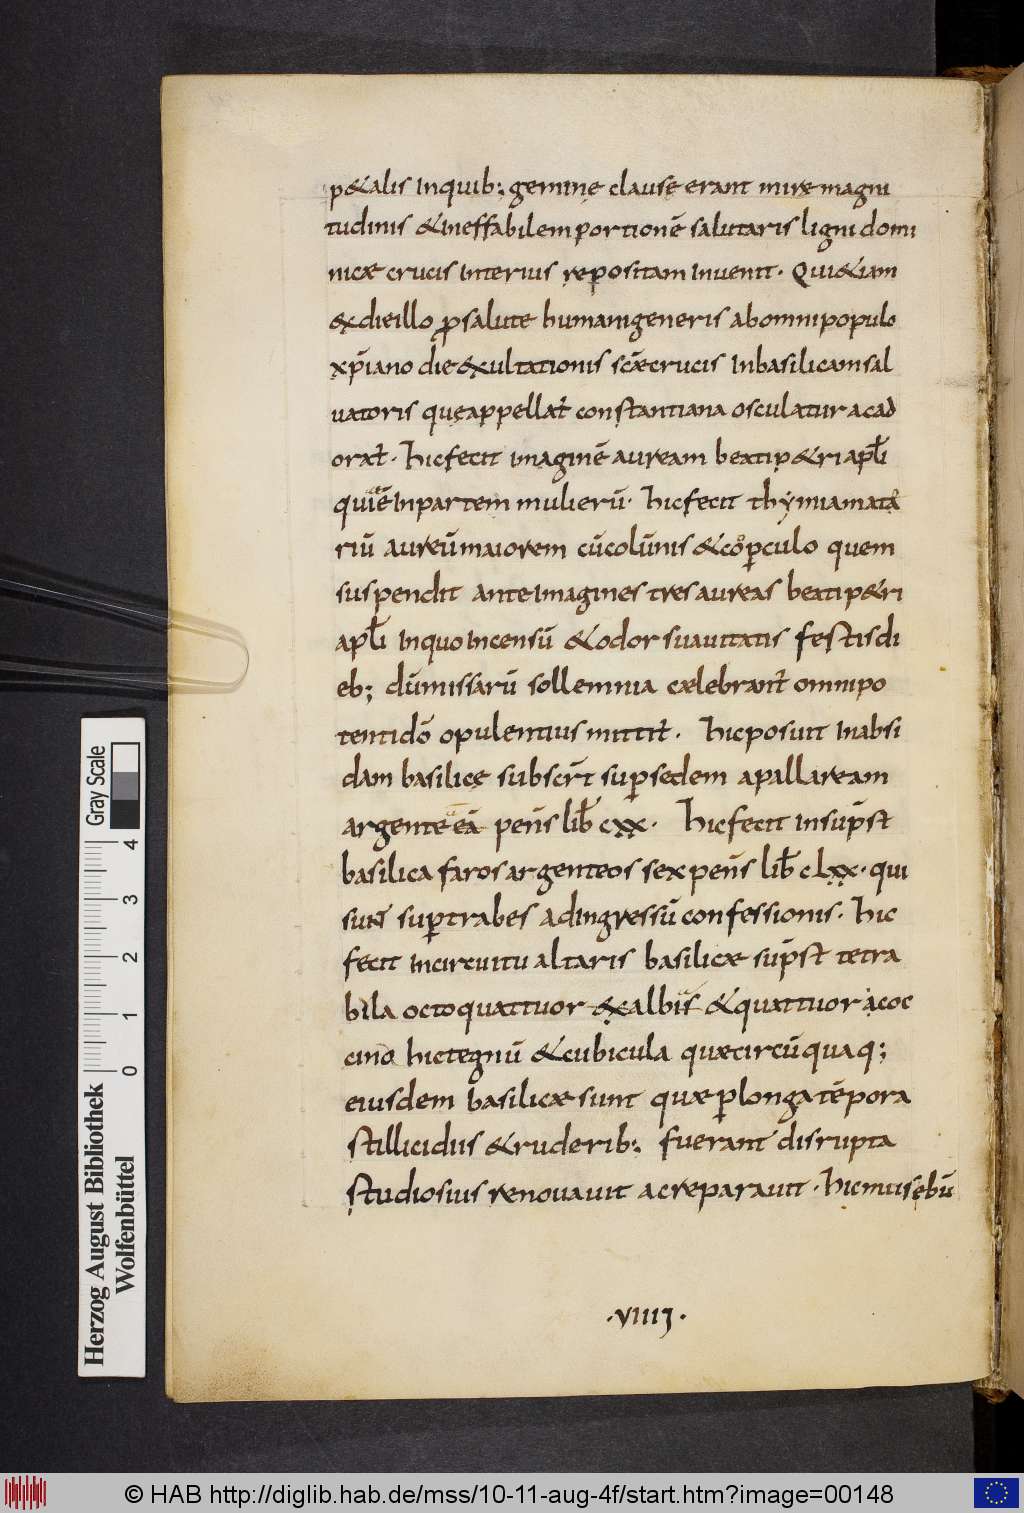 p&alis Inquib; geminę clausę erant miræ magni
tudinis &ineffabilem portionē salutaris ligni domi
nicæ crucis Interius repositam Inuenit. Qui&iam
&dieillo ꝓsalute humanigeneris abomnipopulo
xp̄iano die&xultationis scǣcrucis Inbasilicamsal
uatoris quęappellat̄ constantiana osculatur acad
orat̄. hicfecit imaginē auream beatip&ri apl̄i
quiǣInpartem mulierū. hicfecit thymiamata
riū aureūmaiorem cūcolūnis &coꝑculo quem
suspendit anteImagines tres aureas beatip&ri
apl̄i InquoIncensū &odor suauitatis festisdi
eb; dūmissarū sollemnia cælebrant̄ omnipo
tentidō opulentius mittit̄. hicposuit Inabsi
dam basilicę subscr̄t suꝑsedem apallaream
argenteeā pens̄ lib̄ cxx. hicfecit Insup̄st
basilica faros argenteos sex pens̄ lib̄ clxx. qui
sunt suꝑtrabes adingressū confessionis. hic
fecit Incircuitu altaris basilicæ sup̄st tetra
bila octoquattuor &xalbiis &quattuor acoc
cino hictegnū &cubicula quæcircūquaq;
eiusdem basilicæ sunt quæ ꝑlonga tēpora
stillicidiis &ruderib; fuerant disrupta
studiosius renouauit acreparauit. hicmusebū
.VIIII.
Herzog August Bibliothek
Wolfenbüttel
0 1 2 3 4
Gray Scale
© HAB http://diglib.hab.de/mss/10-11-aug-4f/start.htm?image=00148